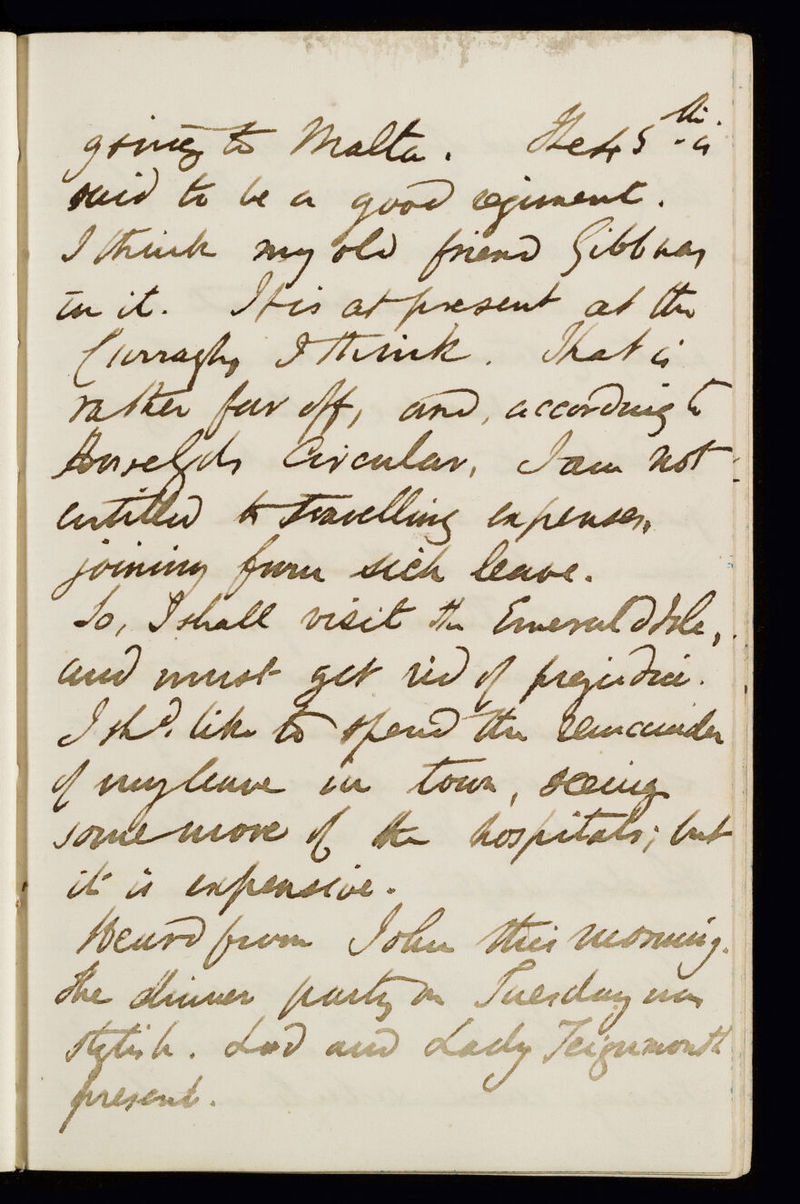 going to Malta. The 45th is
said to be a good regiment.
I think my old friend Gibb was
in it. It is at present at the
Curragh, I think. That is
rather far off, and, according to
Horse Gds Circular, I am not
entitled to travelling expenses,
joining from sick leave.
So, I shall visit the Emerald Isle,
and must get rid of prejudice.
I shd. like to spend the remainder
of my leave in town, seeing
some more of the hospitals; but
it is expensive.
Heard from John this morning.
The dinner party on Tuesday was
stylish. Lord and Lady Teignmouth
present.